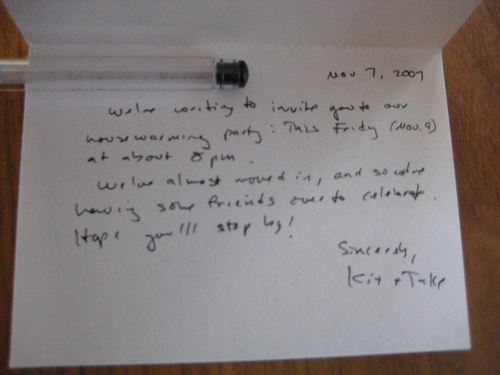 Nov 7, 2007
We're writing to invite you to our
housewarming party: This Friday (Nov. 9)
at about 8 pm.
We've almost moved in, and so we're
having some friends over to celebrate.
Hope you'll stop by!
Sincerely,
Kit +